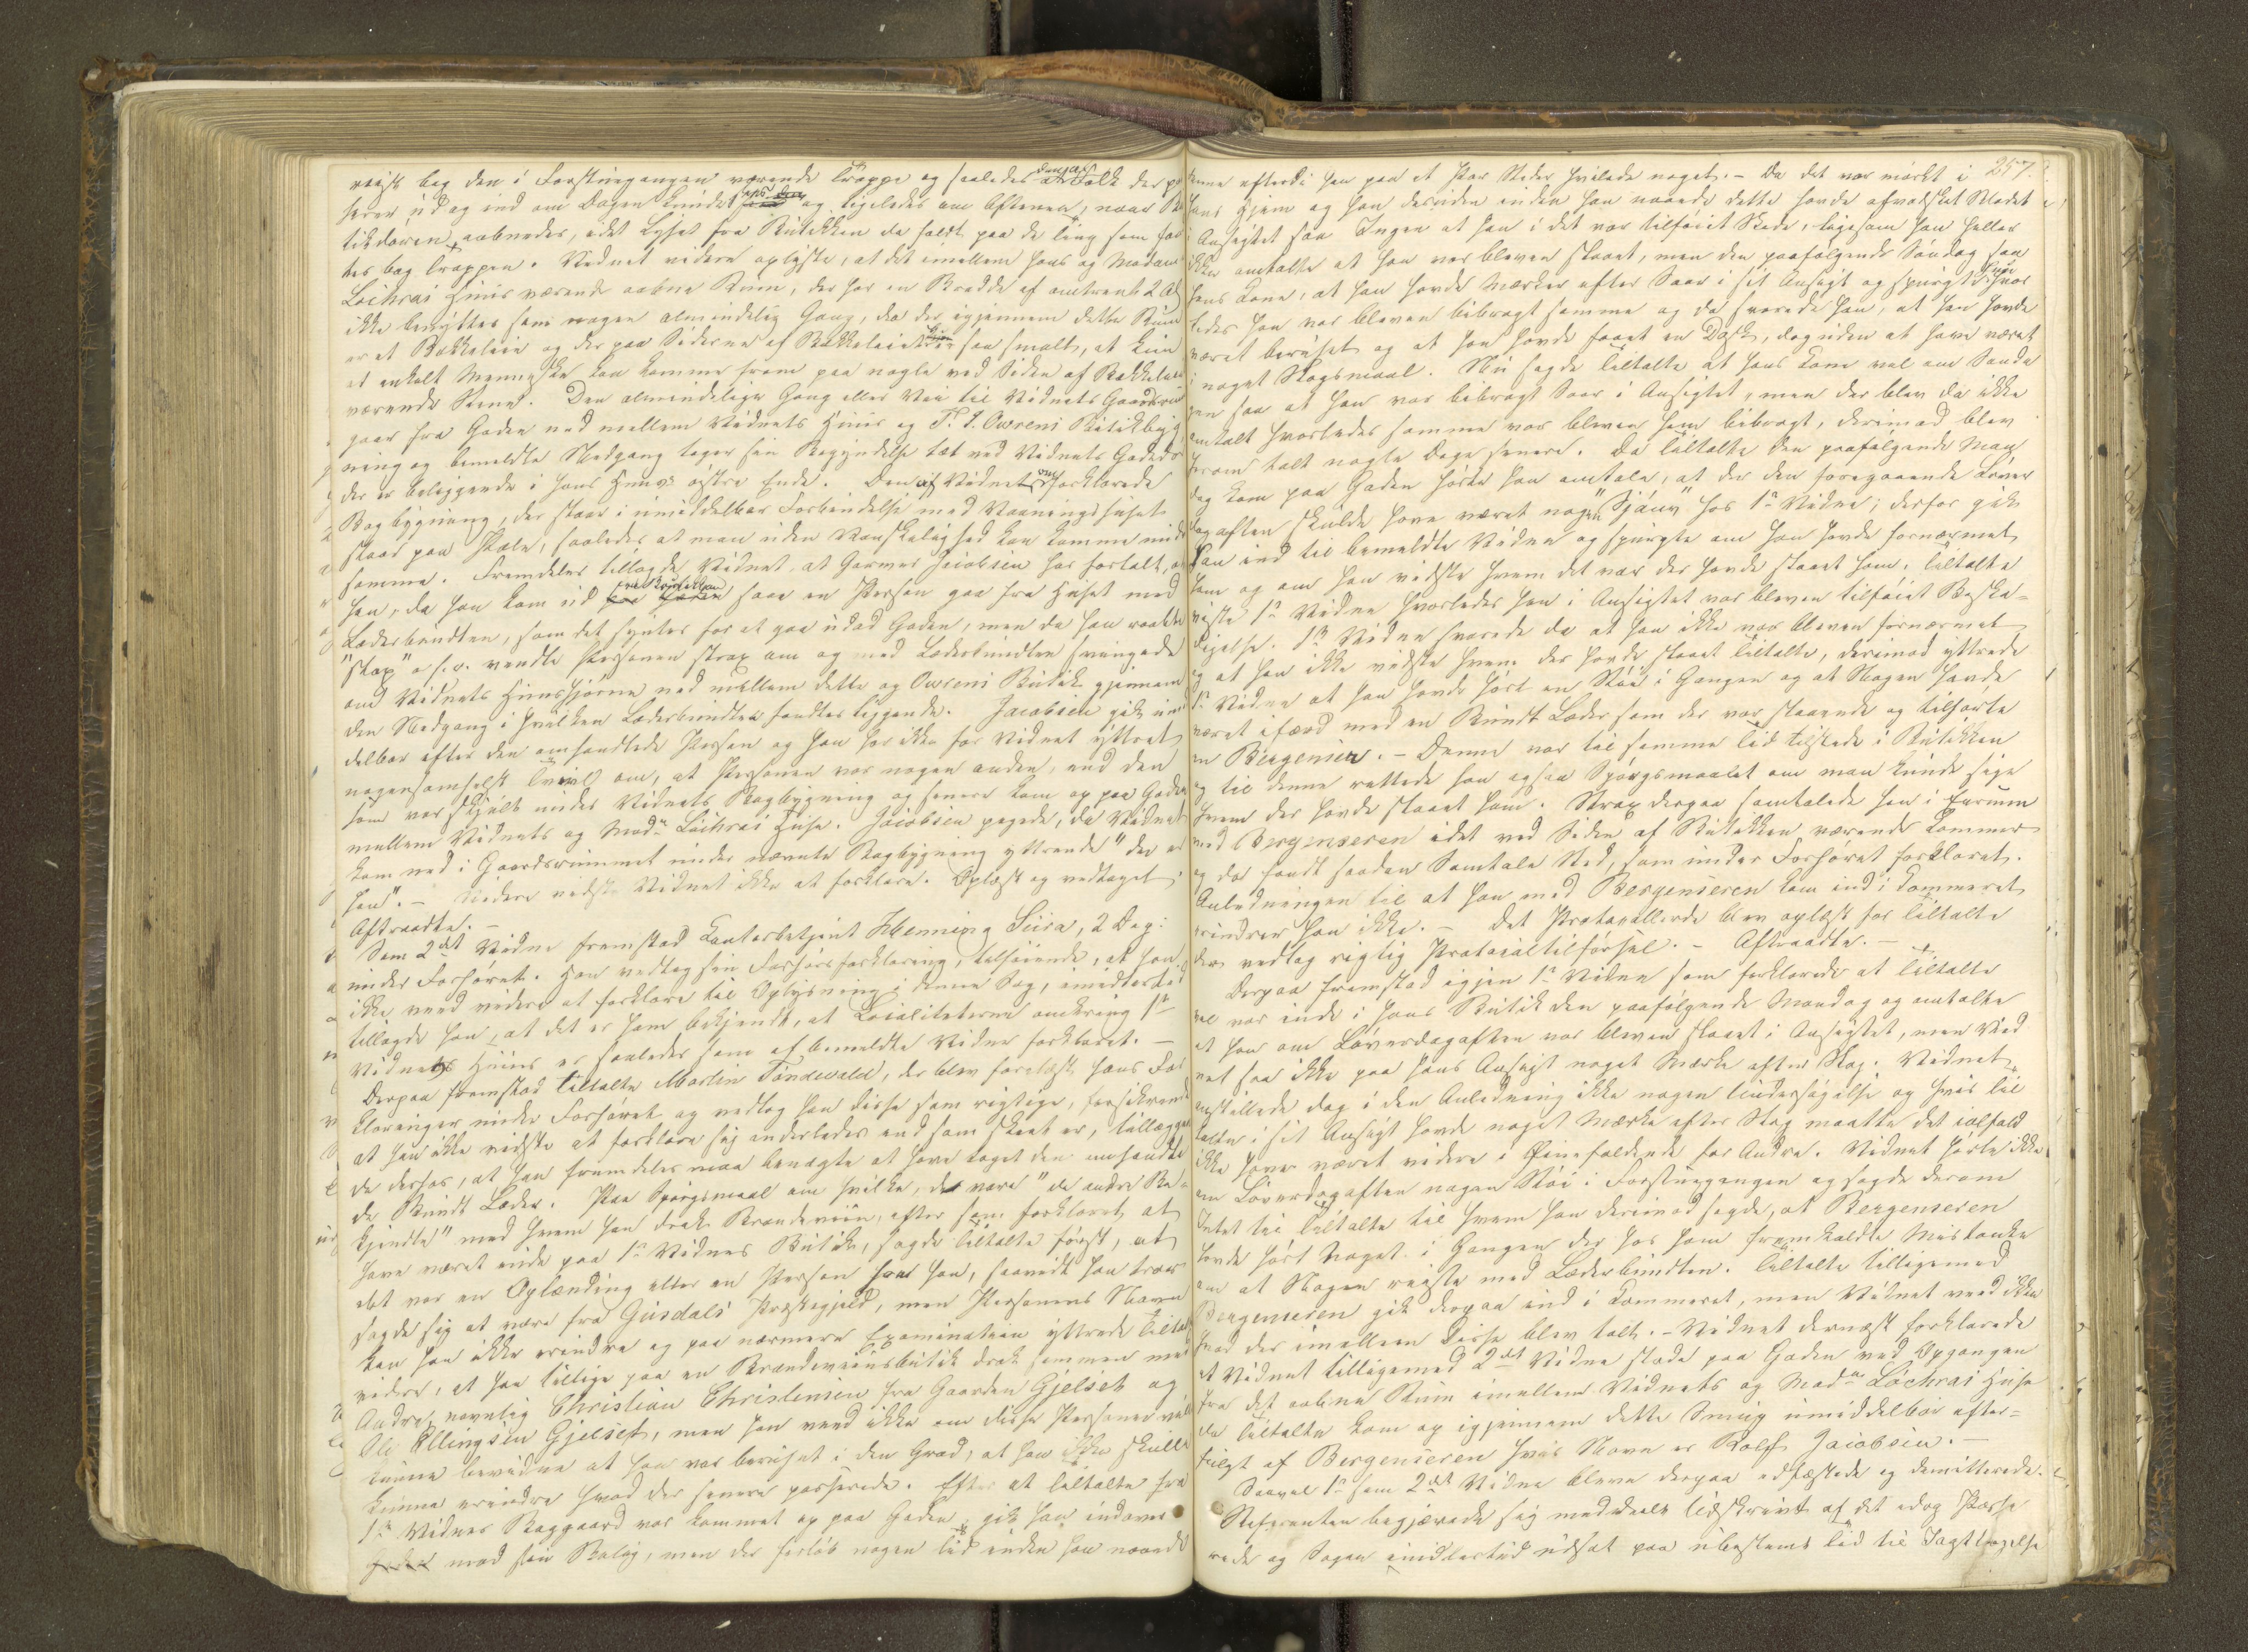 reist bag den i Forstuegangen værende Trappe og saaledes at Folk der pas
serer ud og ind om Dagen kunde og ligeledes om Aftenen, naar Bu
tikdøren aabnedes, idet Lyset fra Butikken da faldt paa de Ting som fan
tes bag Trappen. Vidnet videre oplyste, at det imellem hans og Madame
Lochrai Huus værende aabne Rum, der har en Bredde af omtrent 2 Al
ikke benyttes som nogen almindelig Gang, da der igjennem dette Rum
er et og der paa Siderne af saa smalt, at kun
et enkelt Menneske kan komme frem paa nogle ved Siden af
værende Stene. Den almindelige Gang eller Vei til Vidnets Gaardsrum
gaar fra Gaden ned mellem Vidnets Huus og T. J. Owreni Butikbyg
ning og bemeldte Nedgang tager sin Begyndelse tæt ved Vidnets Gadedør
der er beliggende i hans Huus's østre Ende. Den af Vidnet omforklarede
Bagbygning, der staar i umiddelbar Forbindelse med Vaaningshuset
staar paa Pæle, saaledes at man uden Vanskelighed kan komme under
samme. Fremdeles tillagde Vidnet at Garver Jacobsen har fortalt, at
han, da han kom ud saa en Person gaa fra Huset med
Læderbundten, som det syntes for at gaa udad Gaden, men da han raabte
"stop" vendte Personen strax om og med Læderbundten svingede
om Vidnets Huushjørne ned mellem dette og Owreni Butik gjennem
den Nedgang i hvilken Læderbundten fandtes liggende. Jacobsen gik umid
delbar efter den omhandlede Person og han har ikke for Vidnet yttret
nogensomhelst Tvivl om, at Personen var nogen anden, end den
som var skjult under Vidnets Bagbygning og senere kom op paa Gaden
mellem Vidnets og Mad: Lochrai Huse. Jacobsen pegede, da Vidnet
kom ned i Gaardsrummet under nævnte Bagbygning yttrende "der er
han". – Videre vidste Vidnet ikke at forklare. Oplæst og vedtaget.
Aftraadte. –
Som 2det Vidne fremstod Contorbetjent Henning Siira, 2 Deg:
under Forhøret. Han vedtog sin Forhørsforklaring, tilføiende, at han
ikke veed videre at forklare til Oplysning i denne Sag, imidlertid
tillagde han, at det er ham bekjendt, at Localiteterne omkring 1ste
Vidnets Huus er saaledes som af bemeldte Vidne forklaret. –
Derpaa fremstod Tiltalte Martin Tøndevald, der blev forelæst hans For
klaringer under Forhøret og vedtog han disse som rigtige, forsikrende
at han ikke vidste at forklare sig anderledes end som skeet er, tillægge
de derhos, at han fremdeles maa benægte at have taget den omhandle
de Bundt Læder. Paa Spørgsmaal om hvilke, det vare "de andre Be-
kjendte" med hvem han drak Brændeviin, efter som forklaret at
have været inde paa 1ste Vidnes Butik, sagde Tiltalte først, at
det var en Oplænding eller en Person han, saavidt han troer
sagde sig at være fra Gusdals Præstegjeld, men Personens Navn
kan han ikke erindre og paa nærmere Examination yttrede Tiltalte
videre, at han tillige paa en Brændeviinsbutik drak sammen med
Andre, navnlig Christian Christensen fra Gaarden Gjelset og
Ole Ellingsen Gjelset, men han veed ikke om disse Personer vil
kunne bevidne at han var beruset i den Grad, at han ikke skulle
kunne erindre hvad der senere passerede. Efter at Tiltalte fra
1ste Vidnes Baggaard var kommet op paa Gaden gik han indover
mod sin Bolig, men der forløb nogen Tid inden han naaede
257.
denne efterdi han paa et Par Steder hvilede noget. – Da det var mørkt i
hans Hjem og han desuden inden han naaede dette havde aftvættet Blodet
i Ansigtet saa Ingen at han i det var tilføiet Skade, ligesom han heller
ikke omtalte at han var bleven slaaet, men den paafølgende Søndag saa
hans Kone, at han havde Mærker efter Saar i sit Ansigt og spurgte hun hvor
ledes han var bleven bibragt samme og da svarede han, at han havde
været beruset og at han havde faaet en Dask, dog uden at have været
i noget Slagsmaal. Nu sagde Tiltalte at hans Kone vel om Sønda
gen saa at han var bibragt Saar i Ansigtet, men der blev da ikke
omtalt hvorledes samme var bleven ham bibragt, derimod blev
herom talt nogle Dage senere. Da Tiltalte den paafølgende Man
dag kom paa Gaden hørte han omtale, at der den foregaaende Løver
dagaften skulde have været nogen "Sjau" hos 1ste Vidne; derfor gik
han ind til bemeldte Vidne og spurgte om han havde fornærmet
ham og om han vidste hvem det var der havde slaaet ham. Tiltalte
viste 1ste Vidne hvorledes han i Ansigtet var bleven tilføiet Beska-
digelse. 1ste Vidne svarede da at han ikke var bleven fornærmet
og at han ikke vidste hvem der havde slaaet Tiltalte, derimod yttrede
1ste Vidne at han havde hørt en Støi i Gangen og at Nogen havde
været ifærd med en Bundt Læder som der var staaende og tilhørte
en Bergenser. – Denne var til samme Tid tilstede i Butikken
og til denne rettede han ogsaa Spørgsmaalet om man kunde sige
hvem der havde slaaet ham. Strax derpaa samtalede han i Eenrum
med Bergenseren idet ved Siden af Butikken værende Kammer
og der fandt saadan Samtale Sted, som under Forhøret forklaret.
Anledningen til at han med Bergenseren kom ind i Kammeret
erindrer han ikke. – Det Protocollerede blev oplæst for Tiltalte
der vedtog rigtig Protocoltilførsel. – Aftraadte. –
Derpaa fremstod igjen 1ste Vidne som forklarede at Tiltalte
vel var inde i hans Butik den paafølgende Mandag og omtalte
at han om Løverdagaften var bleven slaaet i Ansigtet, men Vid
net saa ikke paa hans Ansigt noget Mærke efter Slag. Vidnet
anstillede dog i den Anledning ikke nogen Undersøgelse og hvis Til
talte i sit Ansigt havde noget Mærke efter Slag maatte det ialfald
ikke have været videre i Øinefaldende for Andre. Vidnet hørte ikke
om Løverdagaften nogen Støi i Forstuegangen og sagde derom
Intet til Tiltalte til hvem han derimod sagde, at Bergenseren
havde hørt Noget i Gangen der hos ham fremkaldte Mistanke
om at Nogen reiste med Læderbundten. Tiltalte tilligemed
Bergenseren gik derpaa ind i Kammeret, men Vidnet veed ikke
hvad der imellem Disse blev talt. – Vidnet dernæst forklarede
at Vidnet tilligemed 2det Vidne stode paa Gaden ved Opgangen
fra det aabne Rum imellem Vidnets og Mad: Lochrai Huse
da Tiltalte kom op igjennem dette Smug umiddelbar efter-
fulgt af Bergenseren hvis Navn er Rolf Jacobsen. –
Saavel 1ste som 2det Vidne bleve derpaa edfæstede og demitterede.
Referenten begjærede sig meddeelt Udskrivt af det idag Passe
rede og Sagen imidlertid udsat paa ubestemt Tid til Iagttagelse